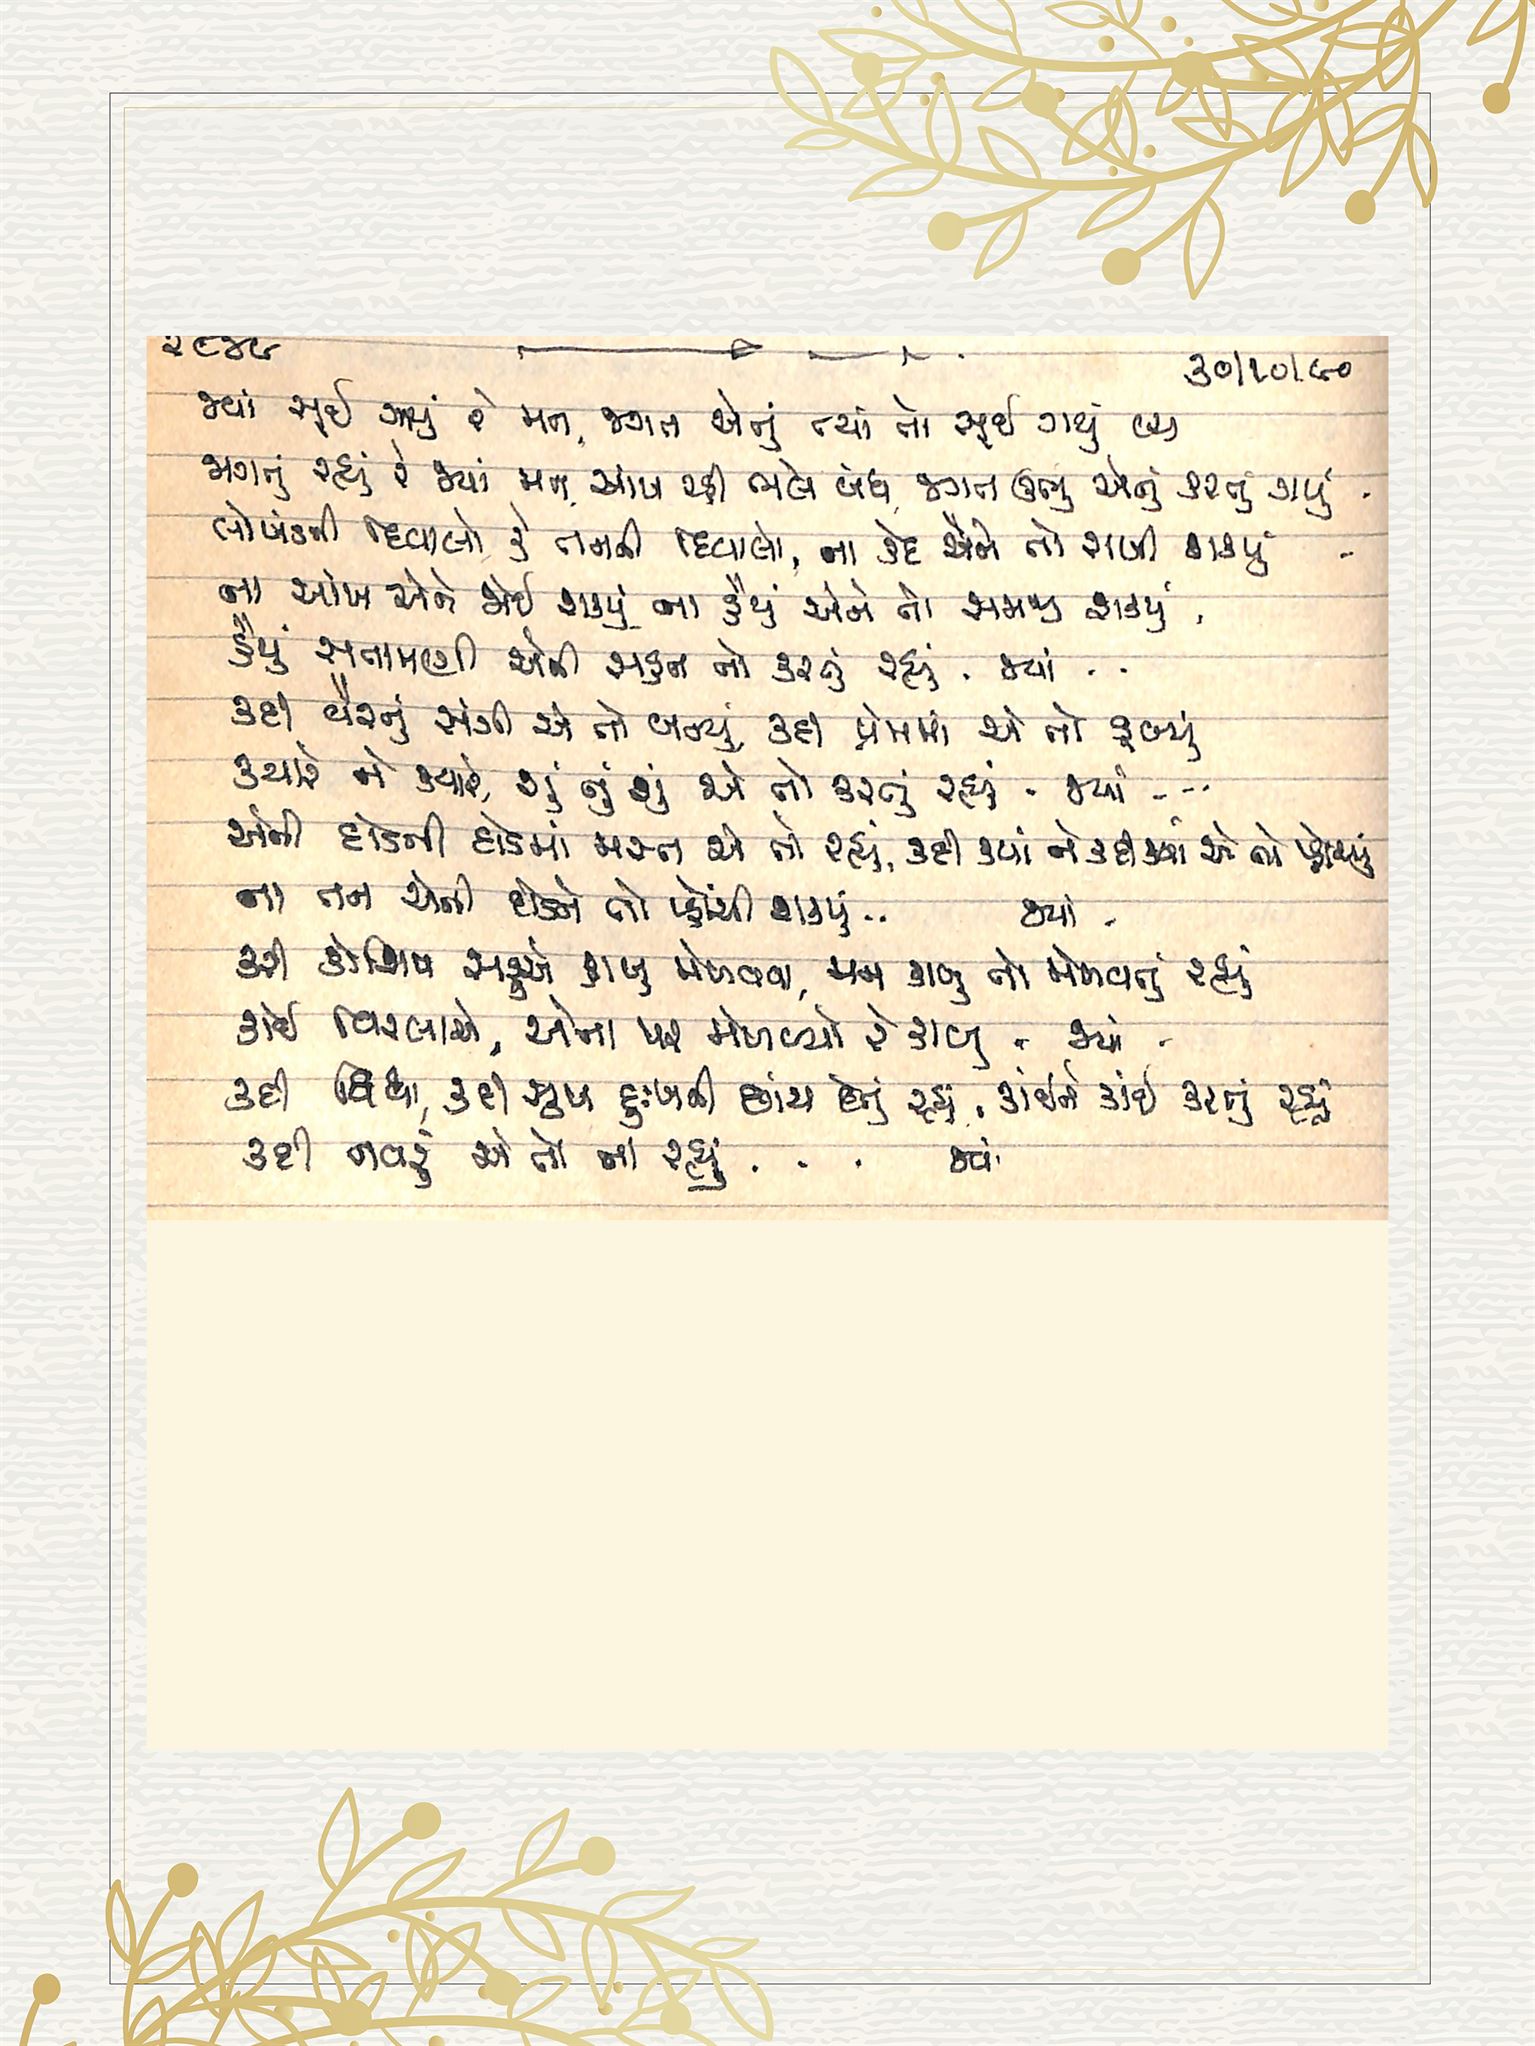 ૨૮૪૯
૩૦/૧૦/૯૦
જ્યાં સૂઈ ગયું રે મન, જગત એનું ત્યાં તો સૂઈ ગયું
જાગતું રહ્યું રે જ્યાં મન, આંખ રહી ભલે બંધ, જગત ઊભું એનું કરતું ગયું.
લોખંડની દિવાલો કે તનની દિવાલો, ના કેદ એને તો રાખી શક્યું
ના આંખ એને જોઈ શક્યું ના હૈયું એને તો સમજી શક્યું.
હૈયું સતામણી એની સહન તો કરતું રહ્યું. જ્યાં ..
કદી વૈરનું સંગી એ તો બન્યું, કદી પ્રેમમાં એ તો ડૂબ્યું
ક્યારે ને ક્યારે, શું નું શું એ તો કરતું રહ્યું. જ્યાં ...
એની દોડની દોડમાં મસ્ત એ તો રહ્યું, કદી ક્યાં ને કદી ક્યાં એ તો પ્હોંચ્યું
ના તન એની દોડને તો પ્હોંચી શક્યું.. જ્યાં .
કરી કોશિષ સહુએ કાબુ મેળવવા, મન કાબુ તો મેળવતું રહ્યું
કોઈ વિરલાએ, એના પર મેળવ્યો રે કાબુ . જ્યાં .
કદી ચિંતા, કદી સુખ દુઃખની છાંય દેતું રહ્યું. કાંઈને કાંઈ કરતું રહ્યું
કદી નવરું એ તો ના રહ્યું . . . જ્યાં